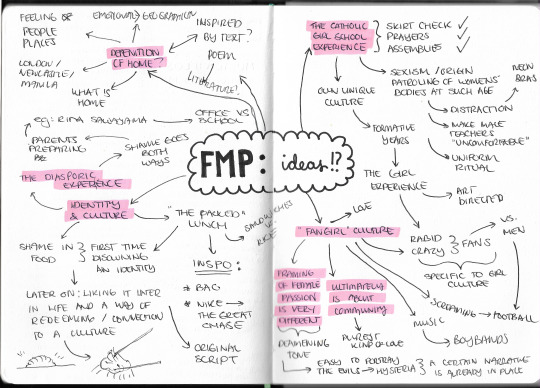 FEELING OF
PEOPLE
PLACES
EMOTIONAL > GEOGRAPHICAL
DEFINITION
OF HOME?
INSPIRED
BY TEXT?
POEM
LITERATURE!
LONDON/
NEWCASTLE/
MANILA
WHAT IS
HOME
eg: RINA SAWAYAMA
OFFICE VS
SCHOOL
PARENTS
PREPARING
SHAME GOES
BOTH
WAYS
THE DIASPORIC
EXPERIENCE
IDENTITY
& CULTURE
"THE PACKED"
LUNCH
SANDWICHES
RICE
SHAME IN
FOOD
FIRST TIME
DISOWNING
AN IDENTITY
LATER ON: LIKING IT LATER
IN LIFE AND A WAY OF
REDEEMING / CONNECTION
TO A CULTURE
INSPO:
* BAO
* NIKE →
THE GREAT
CHASE
ORIGINAL
SCRIPT
FMP: ideas!?
THE CATHOLIC
GIRL SCHOOL
EXPERIENCE
SKIRT CHECK ✓
PRAYERS ✓
ASSEMBLIES ✓
OWN UNIQUE
CULTURE
SEXISM / ORIGIN
PATROLING OF WOMENS'
BODIES AT SUCH AGE
NEON
BRAS
DISTRACTION
MAKE MALE
TEACHERS
"UNCOMFORTABLE"
UNIFORM
RITUAL
FORMATIVE
YEARS
THE GIRL
EXPERIENCE
ART
DIRECTED
LOVE
"FANGIRL" CULTURE
RABID
CRAZY
FANS
VS.
MEN
SPECIFIC TO GIRL
CULTURE
SCREAMING → FOOTBALL
MUSIC
BOYBANDS
FRAMING
OF FEMALE
PASSION
IS VERY
DIFFERENT
ULTIMATELY
IS ABOUT
COMMUNITY
PUREST
KIND OF LOVE
DEMEANING
TONE
EASY TO PORTRAY
THE EVILS → HYSTERIA
A CERTAIN NARRATIVE
IS ALREADY IN PLACE